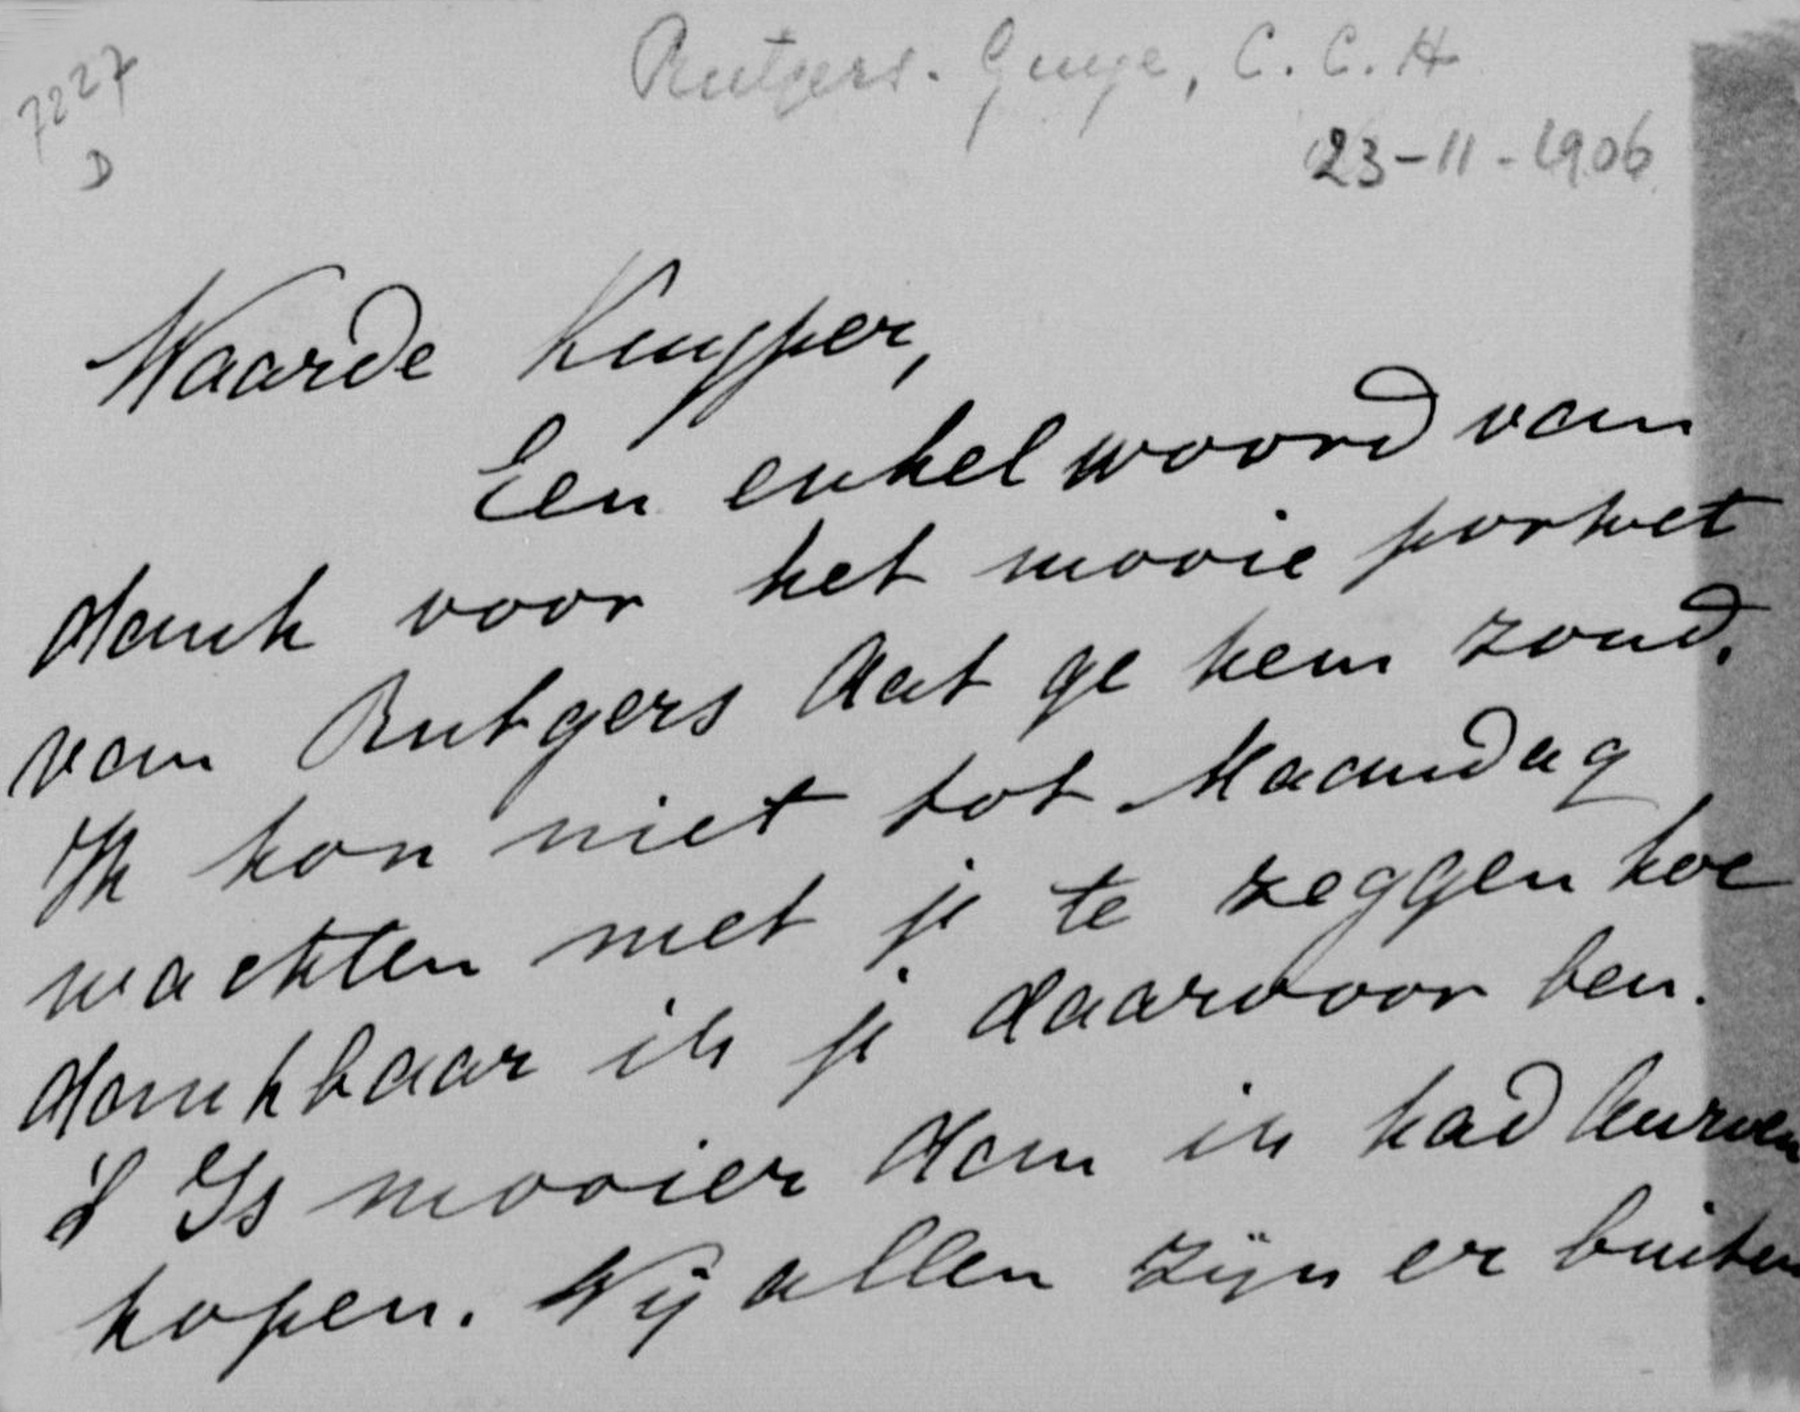 7227
D
Rutgers-Guye, C. C. H
23-11-1906
Waarde Kuyper,
Een enkel woord van
dank voor het mooie portret
van Rutgers dat ge hem zond.
Ik kon niet tot Maandag
wachten met je te zeggen hoe
dankbaar ik je daarvoor ben.
't Is mooier dan ik had durven
hopen. Wij allen zijn er buiten